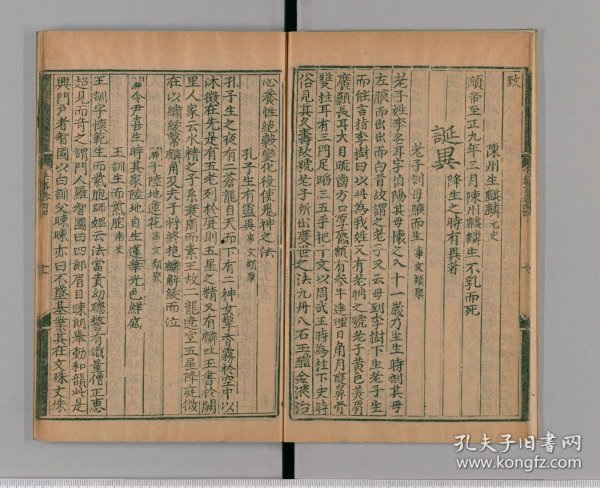 致
陳州生麒麟元史
順帝至正九年三月陳州麒麟生不乳而死
誕異降生之時有異者
老子剖母腋而生事文類聚
老子姓李名耳字伯陽其母懷之八十一歲乃生生時剖其母
左腋而出出而白首故謂之老子又云母到李樹下生老子生
而能言指李樹曰以此為我姓人又有老聃之號老子黃色美眉
廣顙長耳大目疏齒方口厚唇額有參牛達理日角月庭鼻骨
雙柱耳有三門足蹈三五手把丁文以周武王時為柱下史時
俗見其久壽故號老子所出度世之法九丹八石玉醴金液治
心養性絕穀變化役使鬼神之法
孔子生有靈異事文類聚
孔子生之夜有二蒼龍自天而下有二神女擎香霧於空中以
沐徵在先是有五老列於庭則五星之精又有麟吐玉書於闕
里人家云水精之子系衰周而素王故二龍遶室五星降庭徵
在以繡紱繫麟角及夫子將終抱麟解紱而泣
關尹陸地蓮花事文類聚
關令尹喜生時其家陸地自生蓮華光色鮮盛
王訓生而紫胞南史
王訓字懷範生而紫胞師媼云法當貴幼聰警有識量僧正惠
超見而奇之謂門人羅智國曰四郎眉目疎朗舉動和韻此是
興門戶者智國以白訓父暕暕亦曰不墜基業其在文殊文殊
孔夫子旧书网
www.kongfz.com